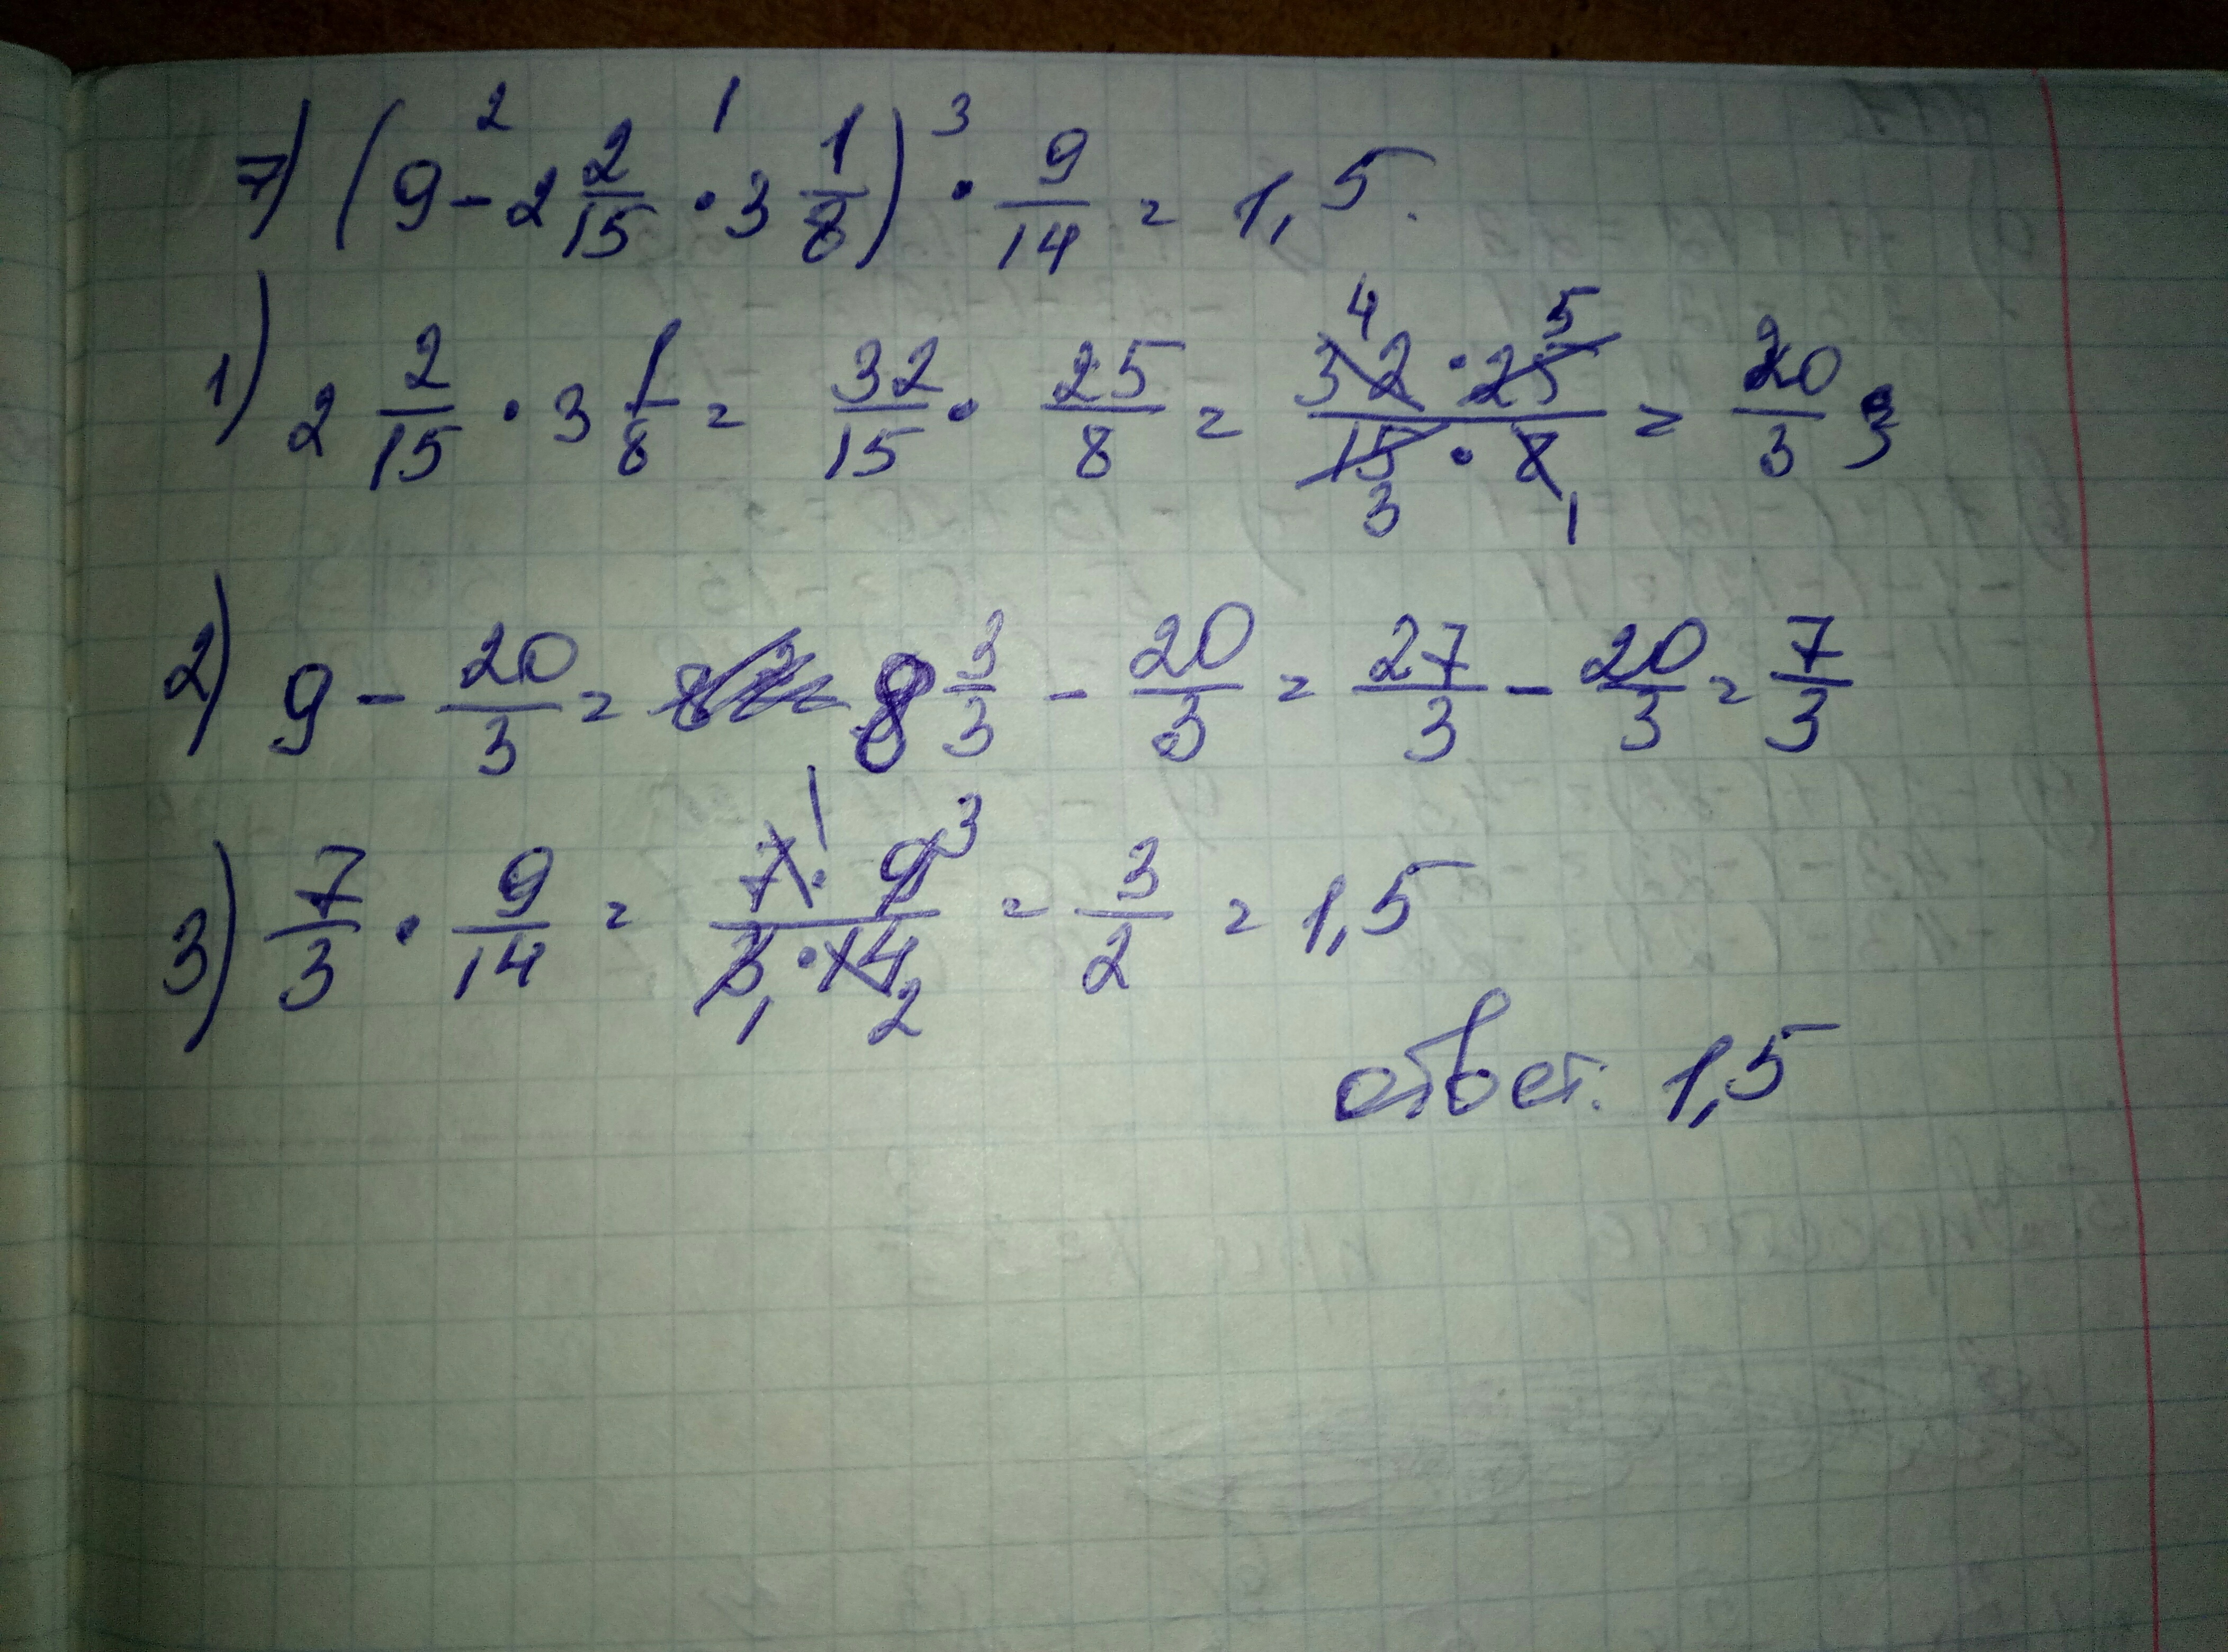 7) (9 - 2 2/15 · 3 1/8) · 9/14 = 1,5.
1) 2 2/15 · 3 1/8 = 32/15 · 25/8 = 32·25/15·8 = 20/3;
2) 9 - 20/3 = 8 3/3 - 20/3 = 27/3 - 20/3 = 7/3
3) 7/3 · 9/14 = 7·9/3·14 = 3/2 = 1,5
ответ: 1,5